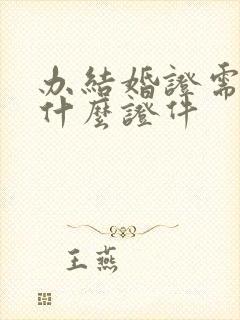 办結婚證需
什麼證件
王燕